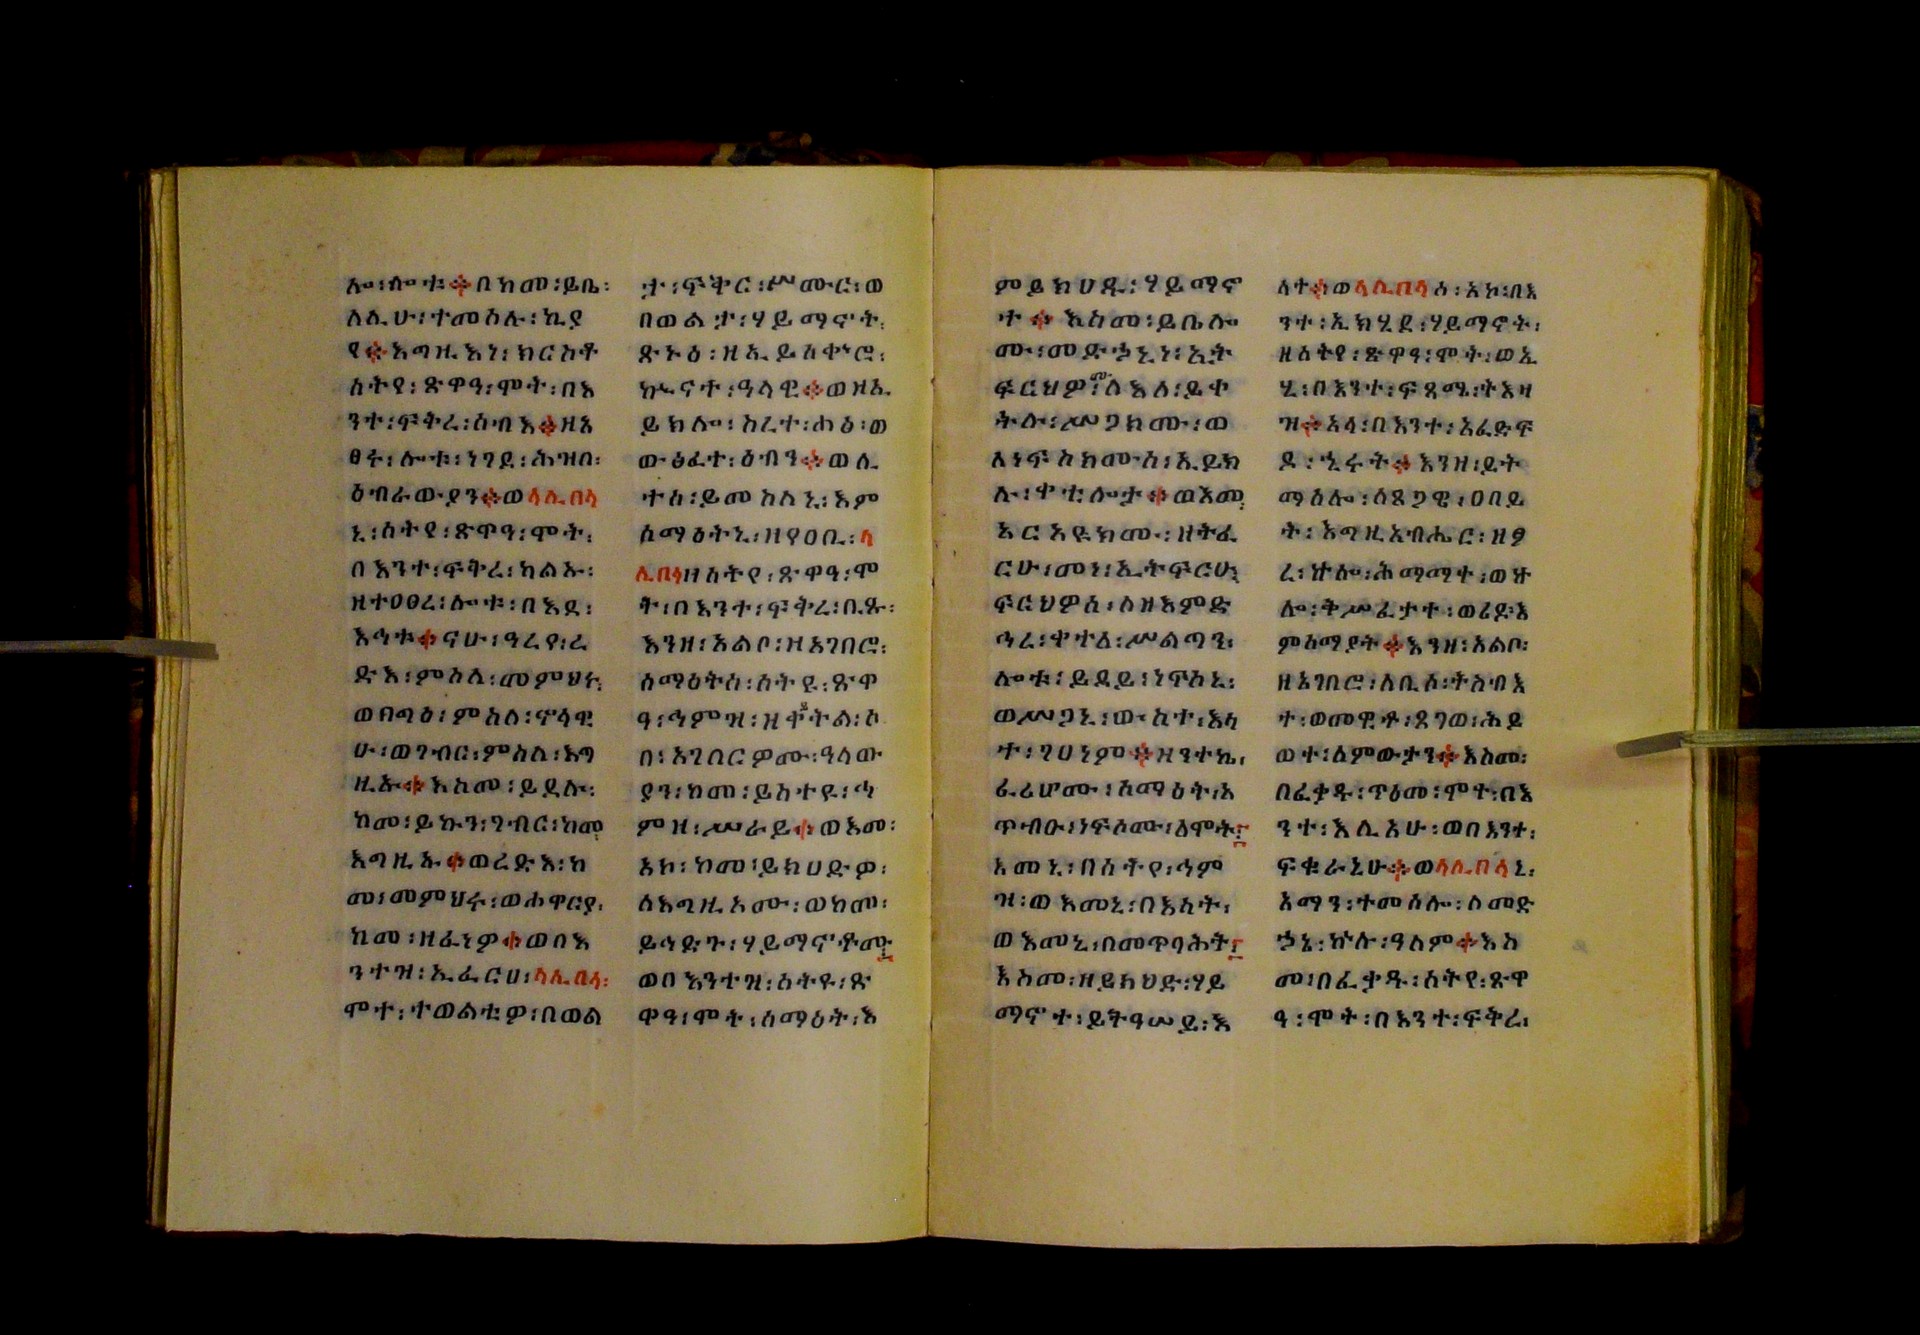 ሎ፡ሎቱ፨በከመ፡ይቤ፡
ለሊሁ፡ተመሰሉ፡ኪያ
የ፨እግዚእነ፡ክርስቶ
ስትየ፡ጽዋዓ፡ሞት፡በእ
ንተ፡ፍቅረ፡ሰብእ፨ዘአ
ፀሩ፡ሎቱ፡ነገደ፡ሕዝበ፡
ዕብራውያን፨ወላሊበላ
ኒ፡ስትየ፡ጽዋዓ፡ሞት፡
በእንተ፡ፍቅረ፡ካልኡ፡
ዘተዐፀረ፡ሎቱ፡በእደ፡
እኅቱ፨ናሁ፡ዓረየ፡ረ
ድእ፡ምስለ፡መምህሩ፡
ወበግዕ፡ምስለ፡ኖላዊ
ሁ፡ወገብር፡ምስለ፡እግ
ዚኡ፨እስመ፡ይደሉ፡
ከመ፡ይኩን፡ገብር፡ከመ
እግዚኡ፨ወረድእ፡ከ
መ፡መምህሩ፡ወሐዋርያ፡
ከመ፡ዘፈነዎ፨ወበእ
ንተዝ፡ኢፈርሀ፡ላሊበላ፡
ሞተ፡ተወልቱዎ፡በወል
ታ፡ፍቅር፡ሥሙር፡ወ
በወልታ፡ሃይማኖት፡
ጽኑዕ፡ዘኢይሰቀሮ፡
ኵናተ፡ዓላዊ፨ወዘኢ
ይክሎ፡አረተ፡ሐፅ፡ወ
ውፅፈተ፡ዕብን፨ወሊ
ተሰ፡ይመስለኒ፡እም
ሰማዕትኒ፡ዘየዐቢ፡ላ
ሊበላዘስትየ፡ጽዋዓ፡ሞ
ት፡በእንተ፡ፍቅረ፡ቢጹ፡
እንዘ፡አልቦ፡ዘአገበሮ፡
ሰማዕትሰ፡ስትዩ፡ጽዋ
ዓ፡ኅምዝ፡ዘቀትል፡ሶ
በ፡አገበርዎሙ፡ዓላው
ያን፡ከመ፡ይስተዩ፡ኅ
ምዘ፡ሥራይ፨ወእመ፡
አኮ፡ከመ፡ይክሀድዎ፡
ለእግዚአሙ፡ወከመ፡
ይኅድጉ፡ሃይማኖቶሙ፡
ወበእንተዝ፡ስትዩ፡ጽ
ዋዓ፡ሞት፡ሰማዕት፡እ
ምይክሀዱ፡ሃይማኖ
ተ፨እስመ፡ይቤሎ
ሙ፡መድኃኒነ፡ኢት
ፍርህዎሙ፡ለእለ፡ይቀ
ትሉ፡ሥጋክሙ፡ወ
ለነፍስክሙሰ፡ኢይክ
ሉ፡ቀቲሎታ፨ወእመ
አርአዩክሙ፡ዘትፈ
ርሁ፡መነ፡ኢትፍርሁ፡
ፍርህዎሰ፡ለዘእምድ
ኅረ፡ቀተለ፡ሥልጣን፡
ሎቱ፡ይደይ፡ነፍሰኒ፡
ወሥጋኒ፡ውስተ፡እሳ
ት፡ገሀነም፨ዘንተኬ፡
ፈሪሆሙ፡ሰማዕት፡አ
ጥብዑ፡ነፍሶሙ፡ለሞት፡
እመኒ፡በስትየ፡ኅም
ዝ፡ወእመኒ፡በእሳት፡
ወእመኒ፡በመጥባሕት፡
እስመ፡ዘይክህድ፡ሃይ
ማኖተ፡ይትዓሠይ፡እ
ሳተ፨ወላሊበላሰ፡አኮ፡በእ
ንተ፡ኢክሂደ፡ሃይማኖት፡
ዘስትየ፡ጽዋዓ፡ሞት፡ወኢ
ሂ፡በእንተ፡ፍጻሜ፡ትእዛ
ዝ፨አላ፡በእንተ፡አፈድፍ
ዶ፡ኂሩት፨እንዘ፡ይት
ማሰሎ፡ሰጸጋዊ፡ዐበይ
ት፡እግዚአብሔር፡ዘፆ
ረ፡ኵሎ፡ሕማማተ፡ወኵ
ሎ፡ቅሥፈታተ፡ወረደ፡እ
ምሰማያት፨እንዘ፡አልቦ፡
ዘአገበሮ፡ለቢሰ፡ትስብእ
ተ፡ወመዊቶ፡ጸገወ፡ሕይ
ወተ፡ለምውታን፨እስመ፡
በፈቃዱ፡ጥዕመ፡ሞተ፡በእ
ንተ፡እሊአሁ፡ወበእንተ፡
ፍቁራኒሁ፨ወላሊበላኒ፡
አማን፡ተመሰሎ፡ለመድ
ኃኔ፡ኵሉ፡ዓለም፨እስ
መ፡በፈቃዱ፡ስትየ፡ጽዋ
ዓ፡ሞት፡በእንተ፡ፍቅረ፡